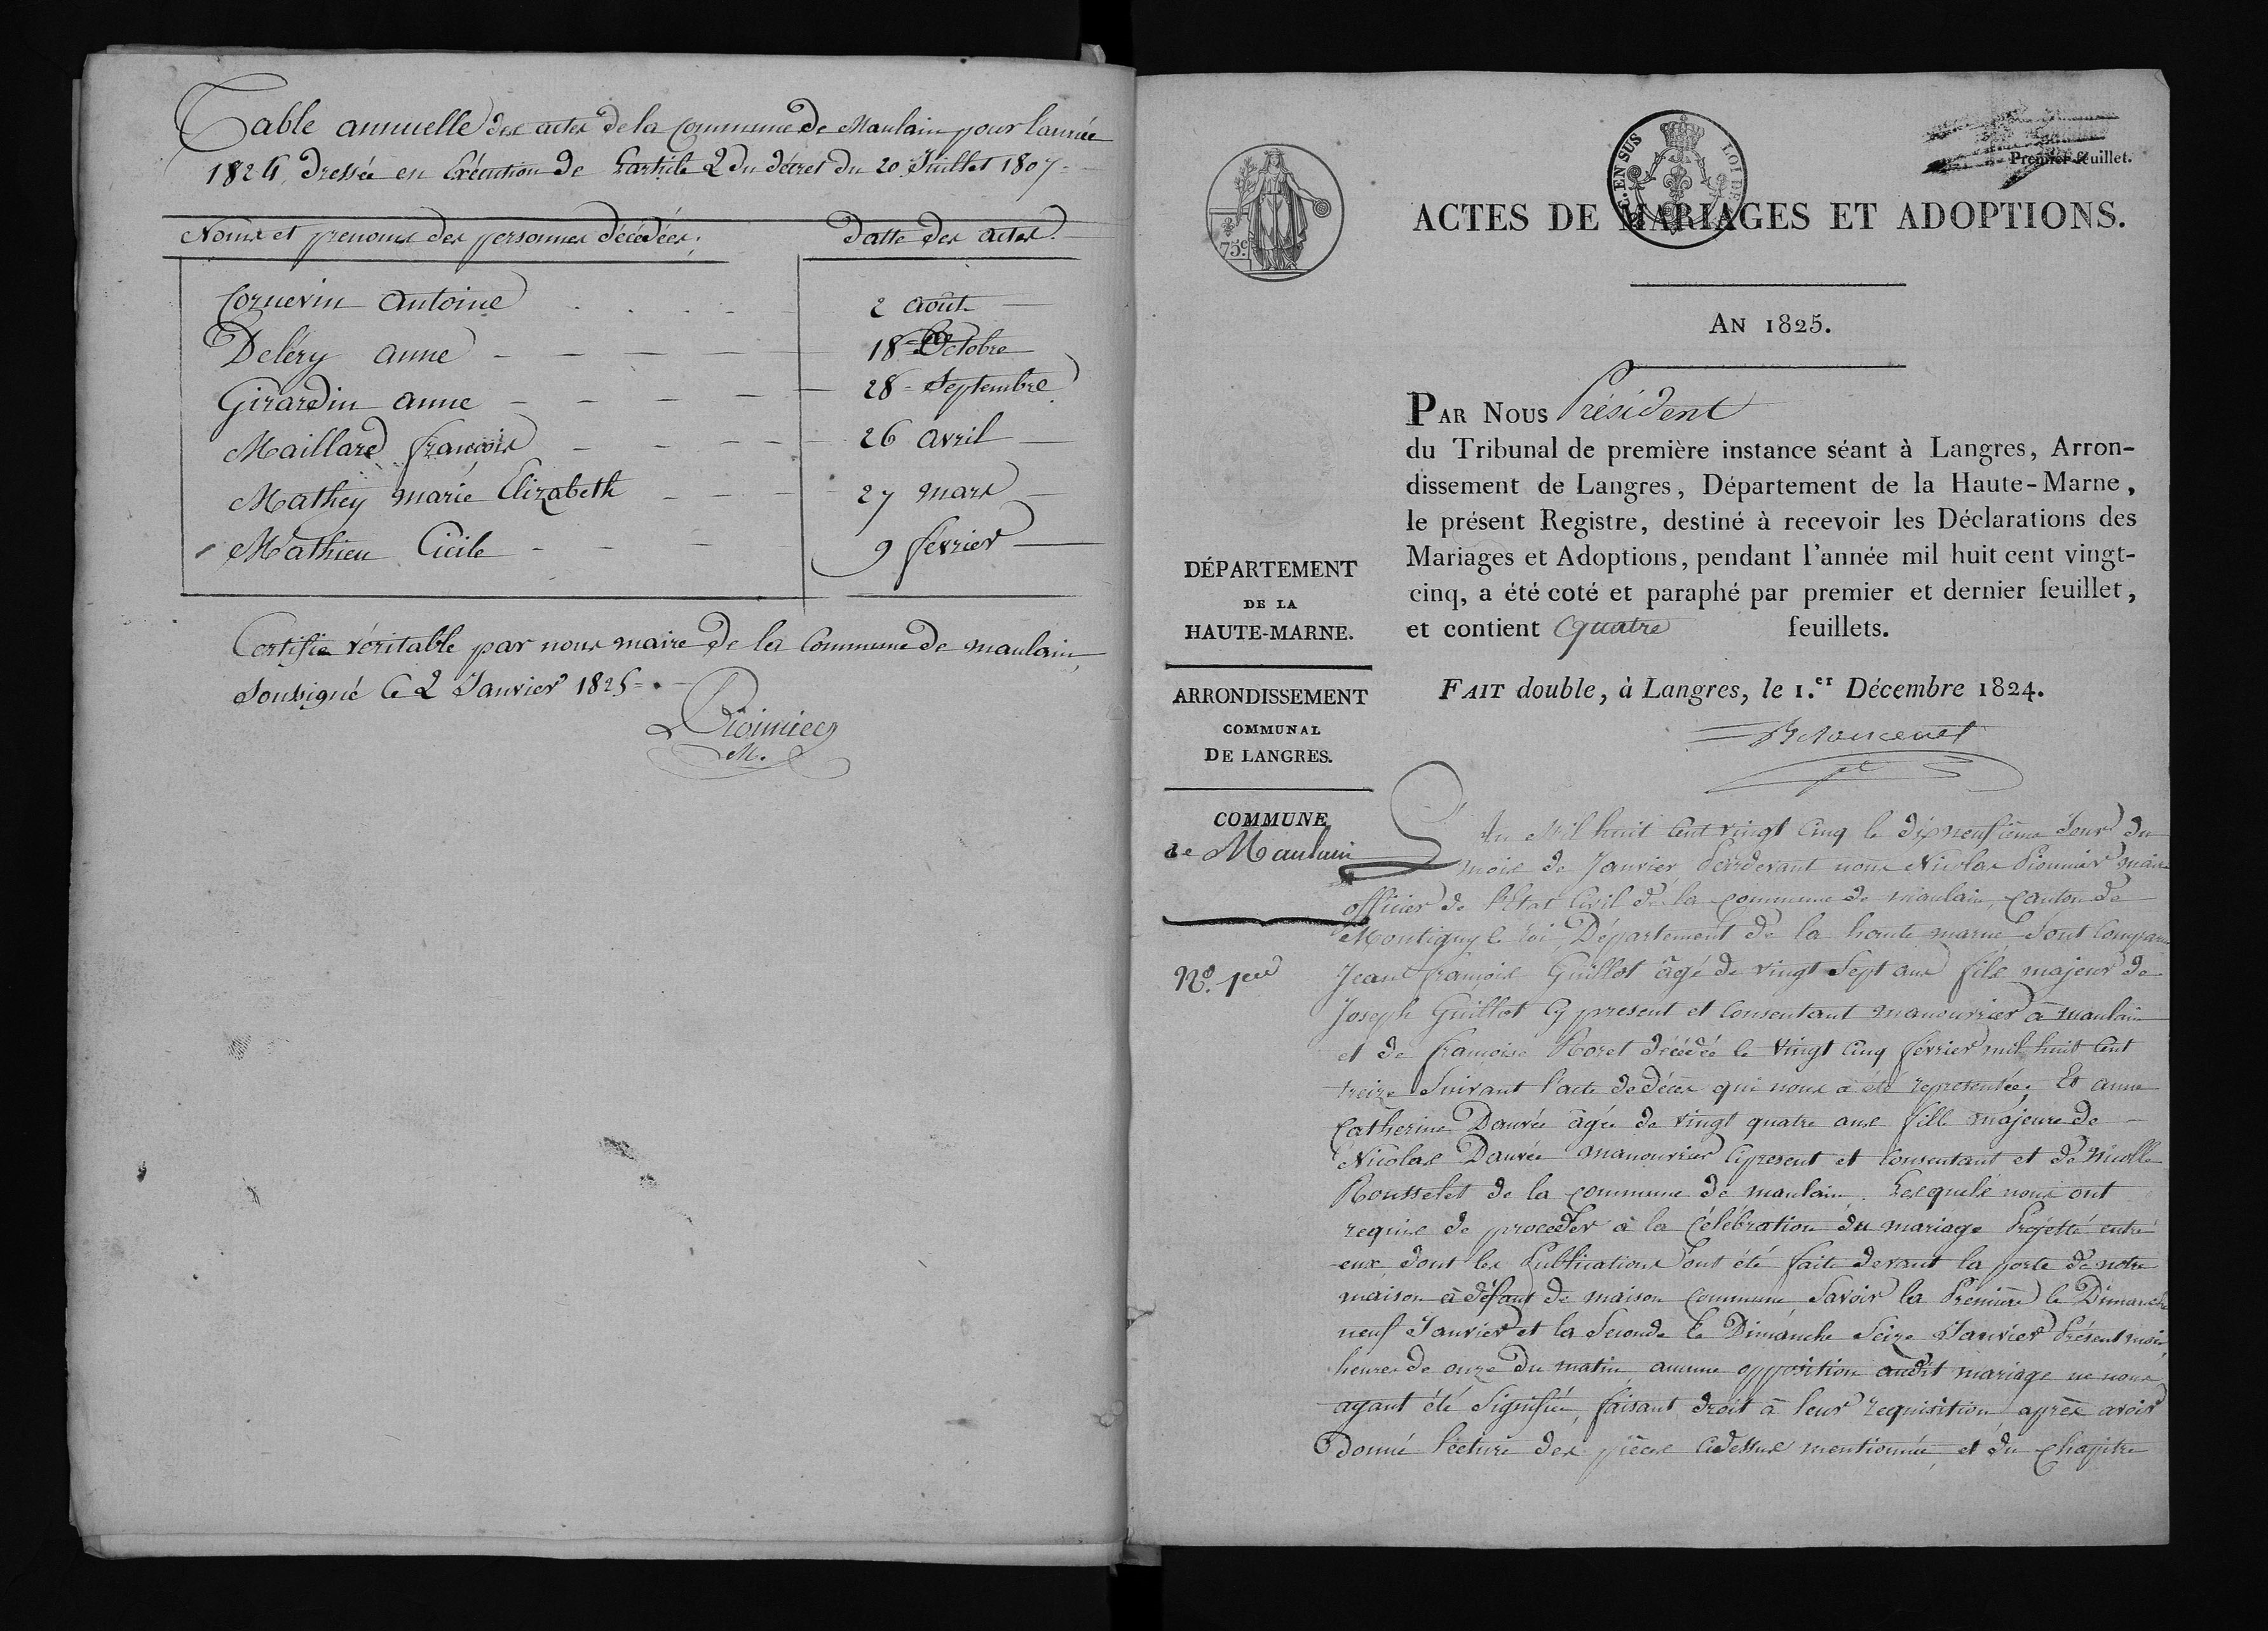 Table annuelle des actes de la Commune de Maulain pour l'année
1824, dressée en Exécution de L'article 2 du décret du 20 Juillet 1807
Noms et prenoms des personnes décédées.
Datte des actes.
Cornevin antoine
2 août
Deléry anne
18 Octobre
Girardin anne
28 Septembre
Maillard françois
26 avril
Mathey marie Elizabeth
27 mars
Mathieu Cicile
9 fevrier
Certifie véritable par nous maire de la Commune de maulain
soussigné le 2 Janvier 1825
Pionnier
M.
75 c.
EN SUS
LOI DE
Premier feuillet.
ACTES DE MARIAGES ET ADOPTIONS.
AN 1825.
PAR NOUS Président
du Tribunal de première instance séant à Langres, Arron-
dissement de Langres, Département de la Haute-Marne,
le présent Registre, destiné à recevoir les Déclarations des
Mariages et Adoptions, pendant l'année mil huit cent vingt-
cinq, a été coté et paraphé par premier et dernier feuillet,
et contient quatre feuillets.
FAIT double, à Langres, le 1.er Décembre 1824.
DÉPARTEMENT
DE LA
HAUTE-MARNE.
ARRONDISSEMENT
COMMUNAL
DE LANGRES.
COMMUNE
de Maulain
N.º 1er
L'An Mil huit Cent vingt Cinq le dixneufième Jour du
mois de Janvier Pardevant nous Nicolas Pionnier maire
officier de l'Etat Civil de la commune de maulain, canton de
Montigny le roi, Département de la haute marne Sont Comparu
Jean françois Guillot âgé de vingt Sept ans fils majeur de
Joseph Guillot Cy present et Consentant manouvrier à maulain
et de françoise Noret décédée le vingt Cinq février mil huit Cent
treize Suivant l'acte de décès qui nous a été representée; Et anne
Catherine Dauvée âgée de vingt quatre ans fille majeure de
Nicolas Dauvée manouvrier Cipresent et Consentant et de Nicolle
Rousselet de la commune de maulain. Lesquels nous ont
requis de proceder à la Célébration du mariage Projetté entre
eux, dont les Publications ont été faite devant la porte de notre
maison à défaut de maison Commune, Savoir la Première le Dimanche
neuf Janvier et la Seconde le Dimanche Seize Janvier Présent mois
heures de onze du matin, aucune opposition audit mariage ne nous
ayant été Signifiée, faisant droit à leur requisition après avoir
donné lecture des pièces Cidessus mentionnée, et du Chapitre